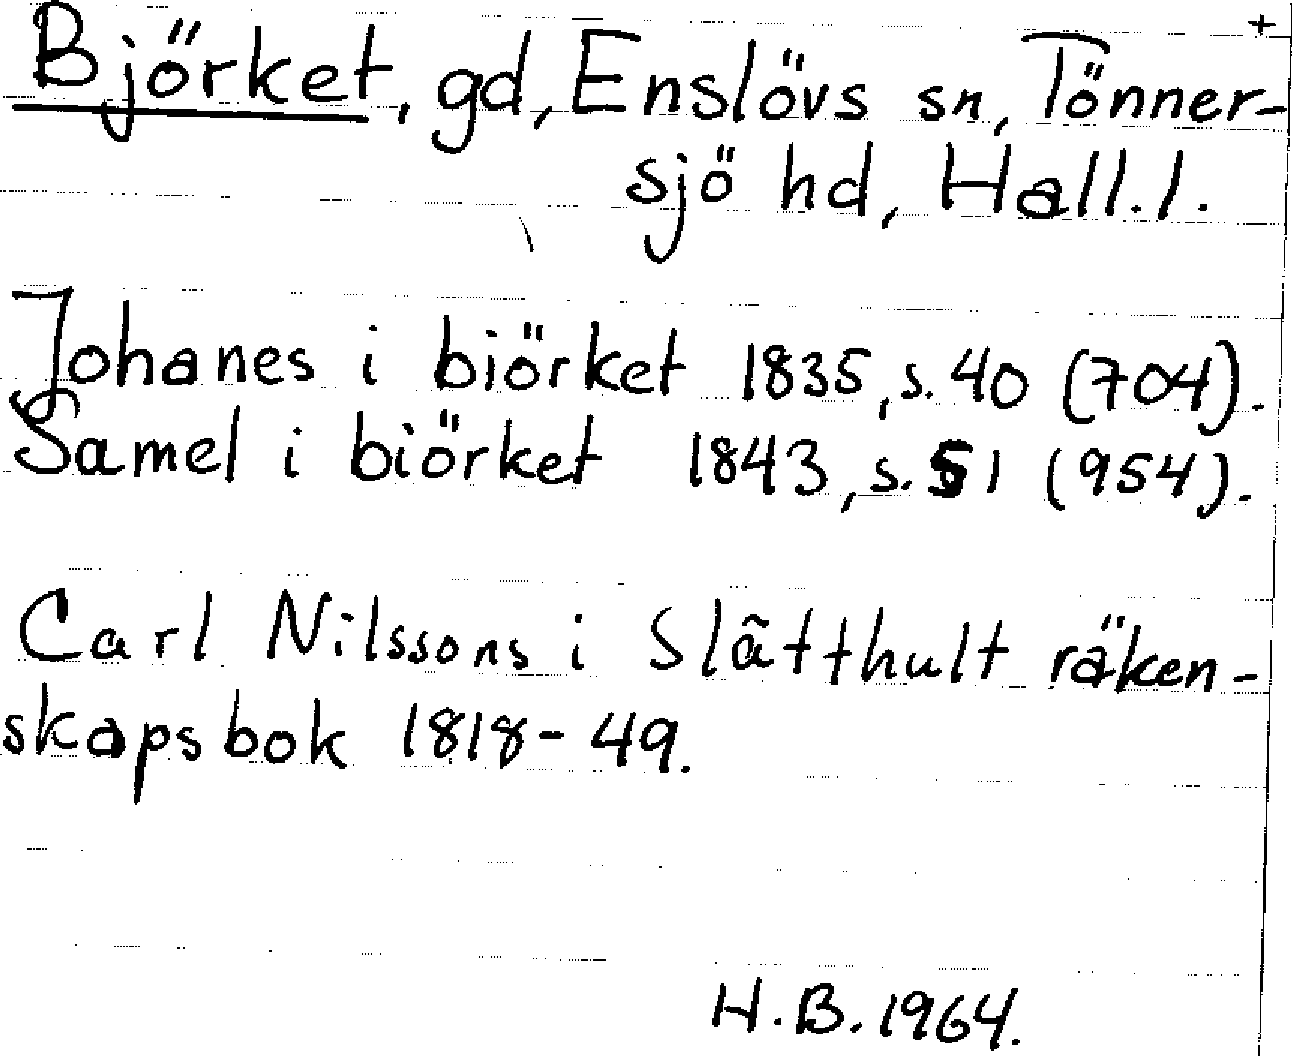 Björket, gd, Enslövs sn, Tönner-
sjö hd, Hall.l.
Johanes i biörket 1835, s. 40 (704).
Samel i biörket 1843, s. 51 (954).
Carl Nilssons i Slätthult räken-
skapsbok 1818-49.
H.B. 1964.